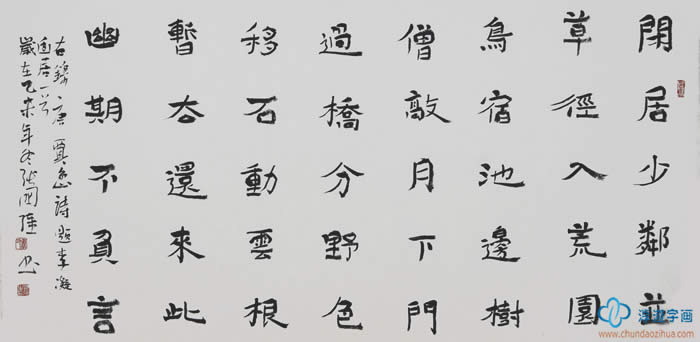 閑居少鄰並
草徑入荒園
鳥宿池邊樹
僧敲月下門
過橋分野色
移石動雲根
暫去還來此
幽期不負言
右錄唐賈島詩題李凝
幽居一首
歲在乙未年冬張 書
淳道字画
www.chundaozihua.com